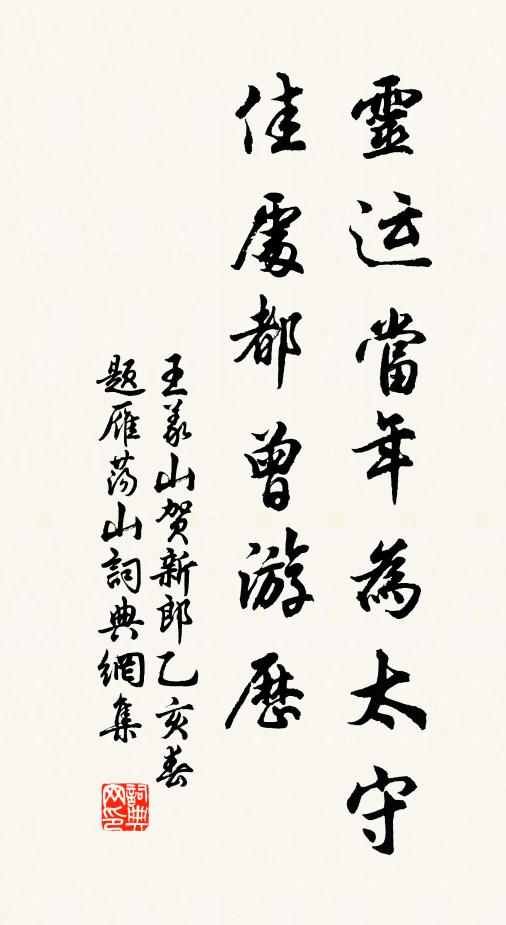 靈运當年為太守
佳處都曾游歷
王義山賀新郎乙亥春
題雁荡山詞典網集
詞典网印